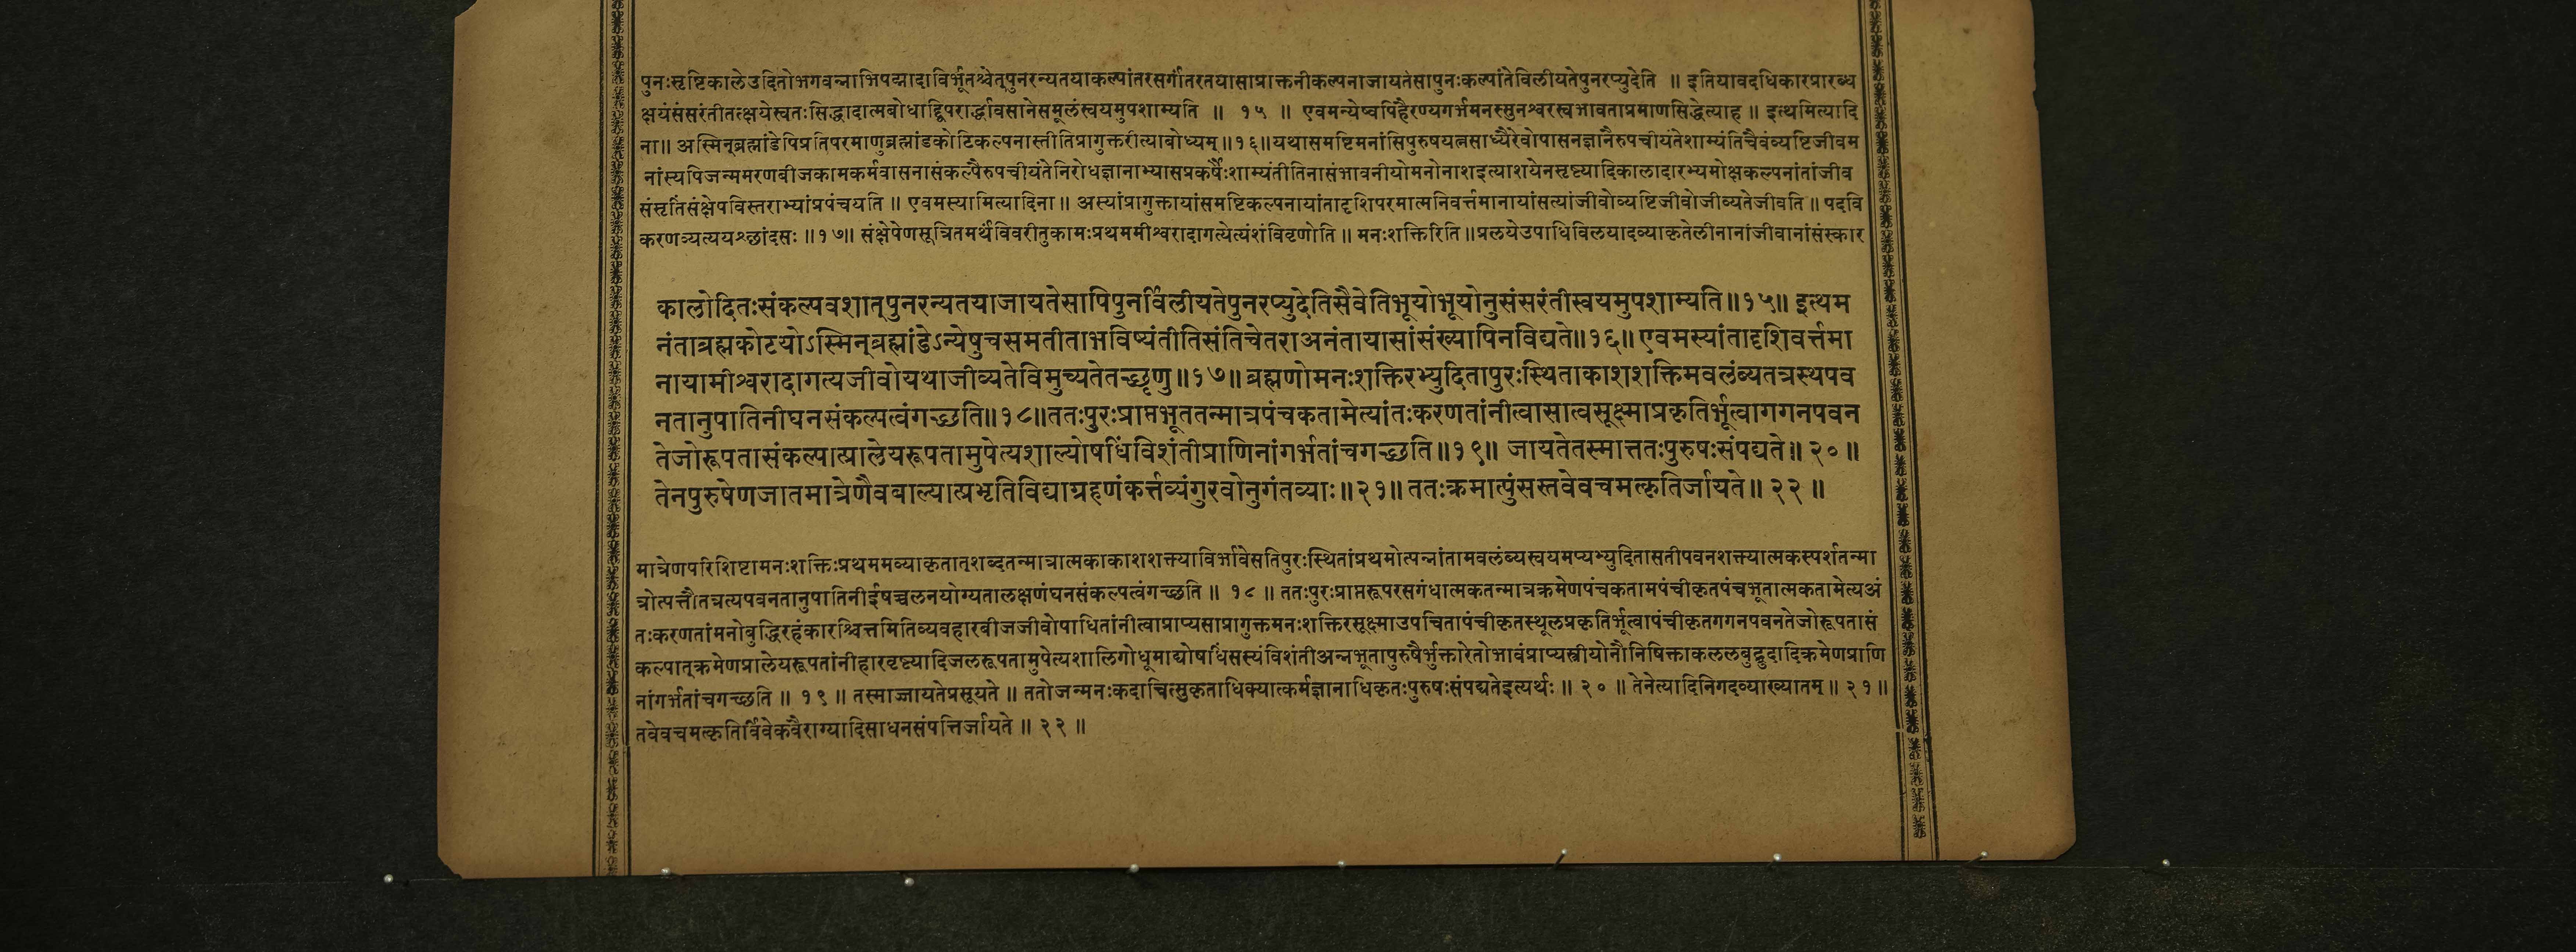 पुनःसृष्टिकालेउदितोभगवन्नाभिपद्मादाविर्भूतश्चेत्पुनरन्यतयाकल्पांतरसर्गांतरतयासाप्राक्तनीकल्पनाजायतेसापुनःकल्पांतेविलीयतेपुनरप्युदेति ॥ इतियावदधिकारप्रारब्ध
क्षयंसंसरंतीतत्क्षयेस्वतःसिद्धादात्मबोधाद्द्विपरार्द्धावसानेसमूलंस्वयमुपशाम्यति ॥ १५ ॥ एवमन्येष्वपिहैरण्यगर्भमनस्सुनश्वरस्वभावताप्रमाणसिद्धेत्याह ॥ इत्थमित्यादि
ना॥ अस्मिन्ब्रह्मांडेपिप्रतिपरमाणुब्रह्मांडकोटिकल्पनास्तीतिप्रागुक्तरीत्याबोध्यम्॥१६॥यथासमष्टिमनांसिपुरुषयत्नसाध्यैरेवोपासनज्ञानैरुपचीयंतेशाम्यंतिचैवंव्यष्टिजीवम
नांस्यपिजन्ममरणबीजकामकर्मवासनासंकल्पैरुपचीयंतेनिरोधज्ञानाभ्यासप्रकर्षैःशाम्यंतीतिनासंभावनीयोमनोनाशइत्याशयेनसृष्ट्यादिकालादारभ्यमोक्षकल्पनांतांजीव
संसृतिंसंक्षेपविस्तराभ्यांप्रपंचयति ॥ एवमस्यामित्यादिना ॥ अस्यांप्रागुक्तायांसमष्टिकल्पनायांतादृशिपरमात्मनिवर्त्तमानायांसत्यांजीवोव्यष्टिजीवोजीव्यतेजीवति ॥ पदवि
करणव्यत्ययश्छांदसः ॥१७॥ संक्षेपेणसूत्रितमर्थंविवरीतुकामःप्रथममीश्वरादागत्येत्यंशंविवृणोति ॥ मनःशक्तिरिति ॥प्रलयेउपाधिविलयादव्याकृतेलीनानांजीवानांसंस्कार
कालोदितःसंकल्पवशात्पुनरन्यतयाजायतेसापिपुनर्विलीयतेपुनरप्युदेतिसैवेतिभूयोभूयोनुसंसरंतीस्वयमुपशाम्यति॥१५॥ इत्थम
नंताब्रह्मकोटयोऽस्मिन्ब्रह्मांडेऽन्येषुचसमतीताभविष्यंतीतिसंतिचेतराअनंतायासांसंख्यापिनविद्यते॥१६॥ एवमस्यांतादृशिवर्त्तमा
नायामीश्वरादागत्यजीवोयथाजीव्यतेविमुच्यतेतच्छृणु॥१७॥ ब्रह्मणोमनःशक्तिरभ्युदितापुरःस्थिताकाशशक्तिमवलंब्यतत्रस्थपव
नतानुपातिनीघनसंकल्पत्वंगच्छति॥१८॥ततःपुरःप्राप्तभूततन्मात्रपंचकतामेत्यांतःकरणतांनीत्वासात्वसूक्ष्माप्रकृतिर्भूत्वागगनपवन
तेजोरूपतासंकल्पात्प्रालेयरूपतामुपेत्यशाल्योषधिंविशंतीप्राणिनांगर्भतांचगच्छति॥१९॥ जायतेतस्मात्ततःपुरुषःसंपद्यते॥ २० ॥
तेनपुरुषेणजातमात्रेणैवबाल्यात्प्रभृतिविद्याग्रहणंकर्त्तव्यंगुरवोनुगंतव्याः॥२१॥ ततःक्रमात्पुंसस्तवेवचमत्कृतिर्जायते॥ २२ ॥
मात्रेणपरिशिष्टामनःशक्तिःप्रथममव्याकृतात्शब्दतन्मात्रात्मकाकाशशक्त्याविर्भावेसतिपुरःस्थितांप्रथमोत्पन्नांतामवलंब्यस्वयमप्यभ्युदितासतीपवनशक्त्यात्मकस्पर्शतन्मा
त्रोत्पत्तौतत्रत्यपवनतानुपातिनीईषच्चलनयोग्यतालक्षणंघनसंकल्पत्वंगच्छति ॥ १८ ॥ ततःपुरःप्राप्तरूपरसगंधात्मकतन्मात्रक्रमेणपंचकतामपंचीकृतपंचभूतात्मकतामेत्यअं
तःकरणतांमनोबुद्धिरहंकारश्चित्तमितिव्यवहारबीजजीवोपाधितांनीत्वाप्राप्यसाप्रागुक्तमनःशक्तिरसूक्ष्माउपचितापंचीकृतस्थूलप्रकृतिर्भूत्वापंचीकृतगगनपवनतेजोरूपतासं
कल्पात्क्रमेणप्रालेयरूपतांनीहारवृष्ट्यादिजलरूपतामुपेत्यशालिगोधूमाद्योषधिंसस्यंविशंतीअन्नभूतापुरुषैर्भुक्तारेतोभावंप्राप्यस्त्रीयोनौनिषिक्ताकललबुद्बुदादिक्रमेणप्राणि
नांगर्भतांचगच्छति ॥ १९ ॥ तस्माज्जायतेप्रसूयते ॥ ततोजन्मनःकदाचित्सुकृताधिक्यात्कर्मज्ञानाधिकृतःपुरुषःसंपद्यतेइत्यर्थः ॥ २० ॥ तेनेत्यादिनिगदव्याख्यातम् ॥ २१ ॥
तवेवचमत्कृतिर्विवेकवैराग्यादिसाधनसंपत्तिर्जायते ॥ २२ ॥